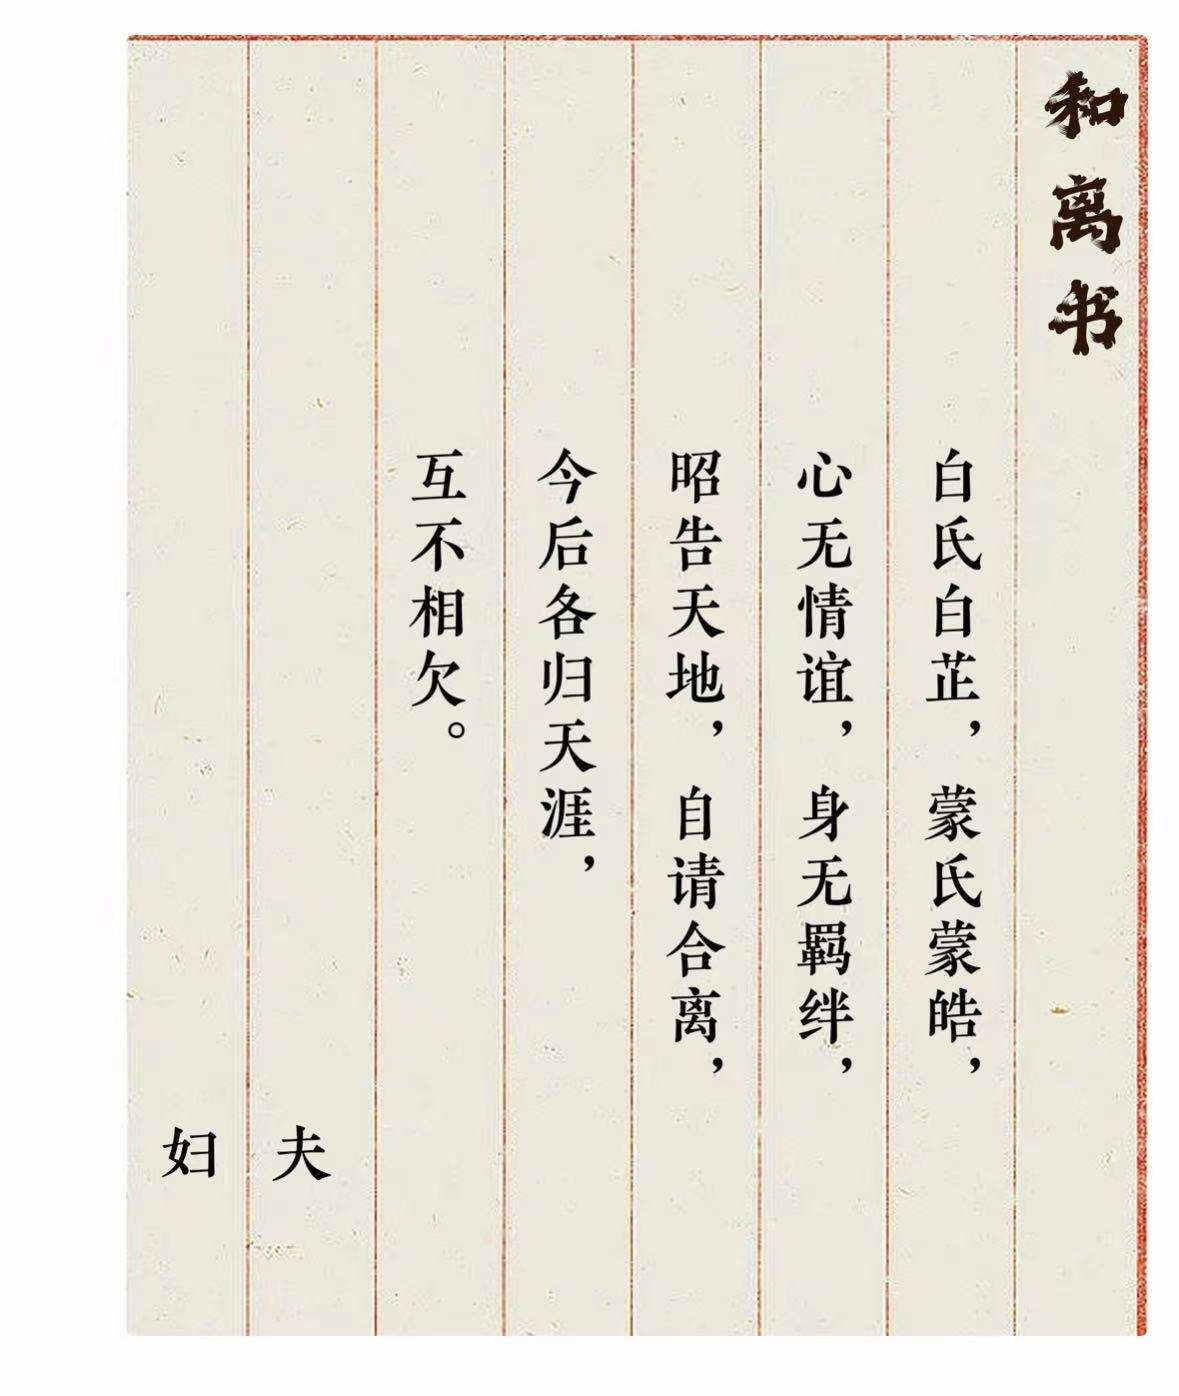 和离书
白氏白芷，蒙氏蒙皓，
心无情谊，身无羁绊，
昭告天地，自请合离，
今后各归天涯，
互不相欠。
夫
妇